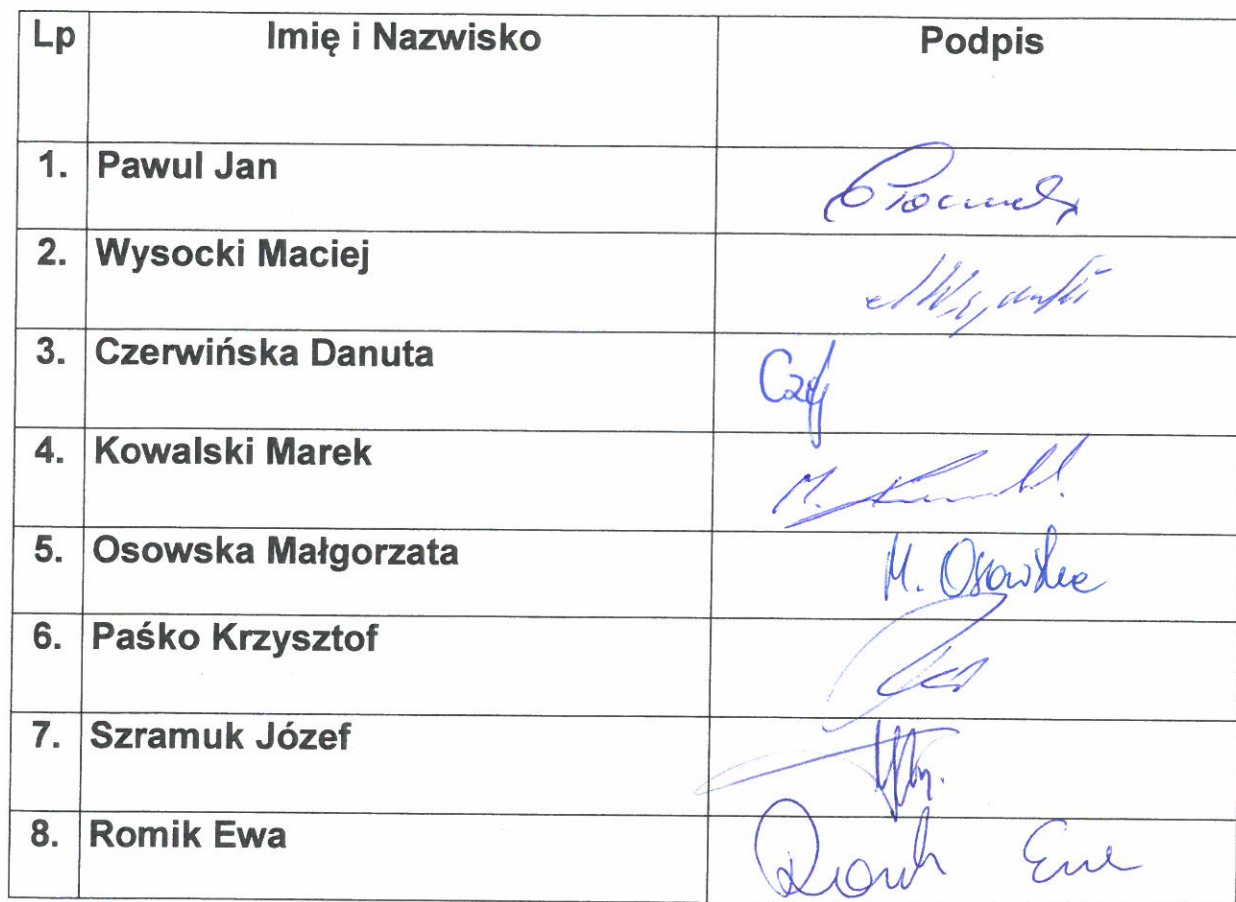 Lp Imię i Nazwisko Podpis
1. Pawul Jan
2. Wysocki Maciej
3. Czerwińska Danuta
4. Kowalski Marek M.
5. Osowska Małgorzata M. Osowska
6. Paśko Krzysztof
7. Szramuk Józef
8. Romik Ewa Romik Ewa